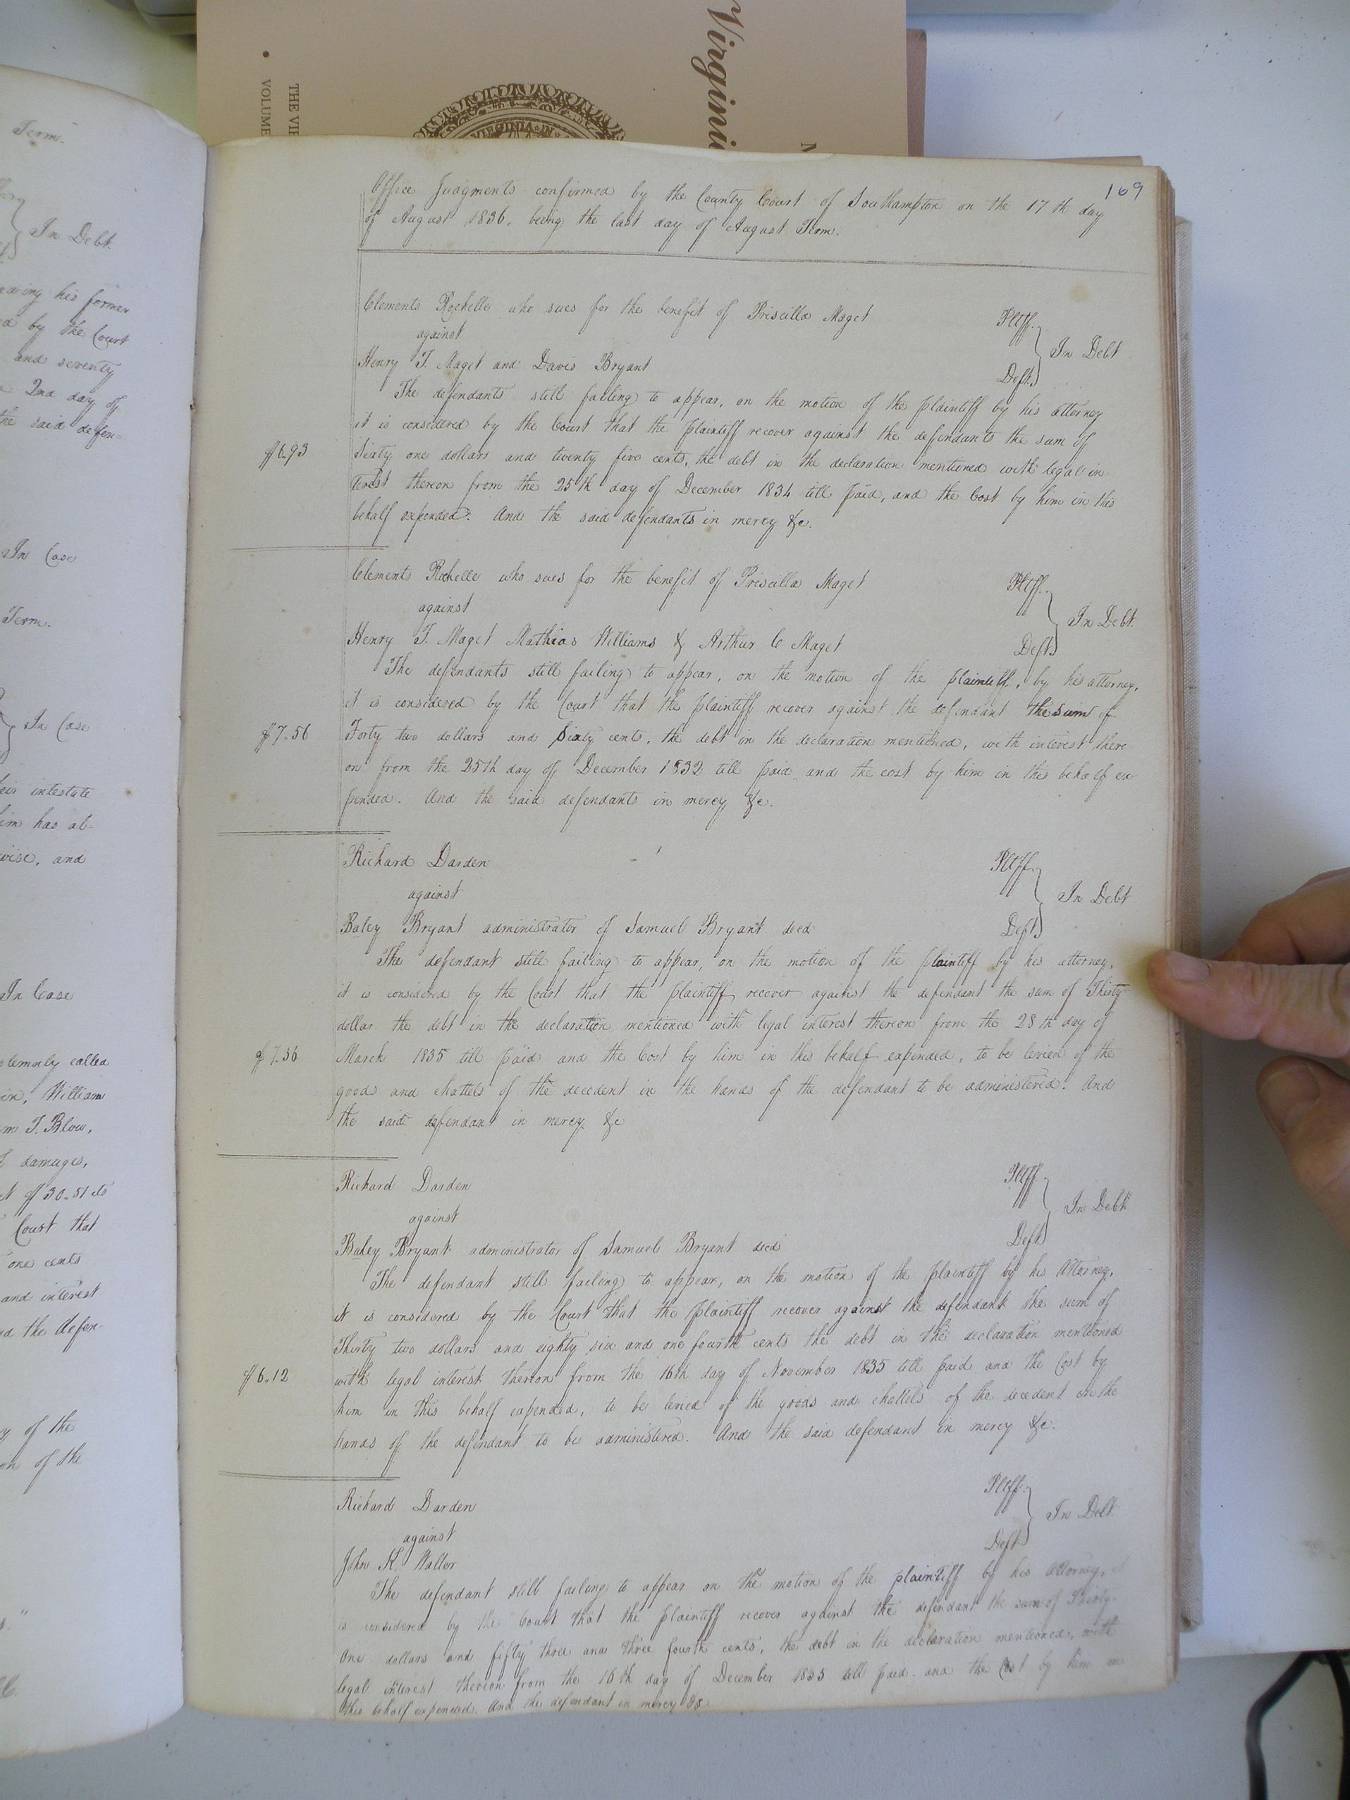 Virgini
THE VI
VOLUME
VIRGINIA IN
169
Office Judgments confirmed by the County Court of Southampton on the 17th day
of August 1836, being the last day of August Term.
Clements Rochelle who sues for the benefit of Priscilla Maget Pltff.
against In Debt
Henry T. Maget and Davis Bryant Deft.
The defendants still failing to appear, on the motion of the plaintiff by his attorney
it is considered by the Court that the plaintiff recover against the defendants the sum of
6.93 Sixty one dollars and twenty five cents, the debt in the declaration mentioned with legal in
terest thereon from the 25th day of December 1834 till paid, and the Cost by him in this
behalf expended. And the said defendants in mercy &c.
Clements Rochelle who sues for the benefit of Priscilla Maget Pltff.
against In Debt.
Henry T. Maget Mathias Williams & Arthur C Maget Deft
The defendants still failing to appear, on the motion of the plaintiff, by his attorney,
it is considered by the Court that the plaintiff recover against the defendant the sum of
7.56 Forty two dollars and Sixty cents, the debt in the declaration mentioned, with interest there
on from the 25th day of December 1832 till paid and the cost by him in this behalf ex
pended. And the said defendants in mercy &c.
Richard Darden Pltff.
against In Debt
Baley Bryant administrator of Samuel Bryant decd Deft
The defendant still failing to appear, on the motion of the plaintiff by his attorney,
it is considered by the Court that the plaintiff recover against the defendant the sum of Thirty
dollar the debt in the declaration mentioned with legal interest thereon from the 28th day of
7.56 March 1835 till paid and the Cost by him in this behalf expended, to be levied of the
goods and chattels of the decedent in the hands of the defendant to be administered. And
the said defendant in mercy &c
Richard Darden Pltff
against In Debt
Baley Bryant administrator of Samuel Bryant decd Deft
The defendant still failing to appear, on the motion of the plaintiff by his Attorney,
it is considered by the Court that the plaintiff recover against the defendant the sum of
Thirty two dollars and eighty six and one fourth cents the debt in the declaration mentioned
6.12 with legal interest thereon from the 16th day of November 1835 till paid and the Cost by
him in this behalf expended, to be levied of the goods and chattels of the decedent in the
hands of the defendant to be administered. And the said defendant in mercy &c.
Richard Darden Pltff.
against In Debt
John K Waller Deft
The defendant still failing to appear on the motion of the plaintiff by his Attorney, it
is considered by the Court that the plaintiff recover against the defendant the sum of Thirty
One dollars and fifty three and three fourth cents, the debt in the declaration mentioned, with
legal interest thereon from the 16th day of December 1835 till paid and the Cost by him in
this behalf expended. And the defendant in mercy &c
Term.
In Debt.
his former
by the Court
and seventy
2nd day of
the said defen=
In Case
Term.
In Case
intestate
him has at-
wise, and
In Case
solemnly called
William
T. Blow,
damages,
30.51 cts
Court that
one cents
and interest
the defen-
of the
of the